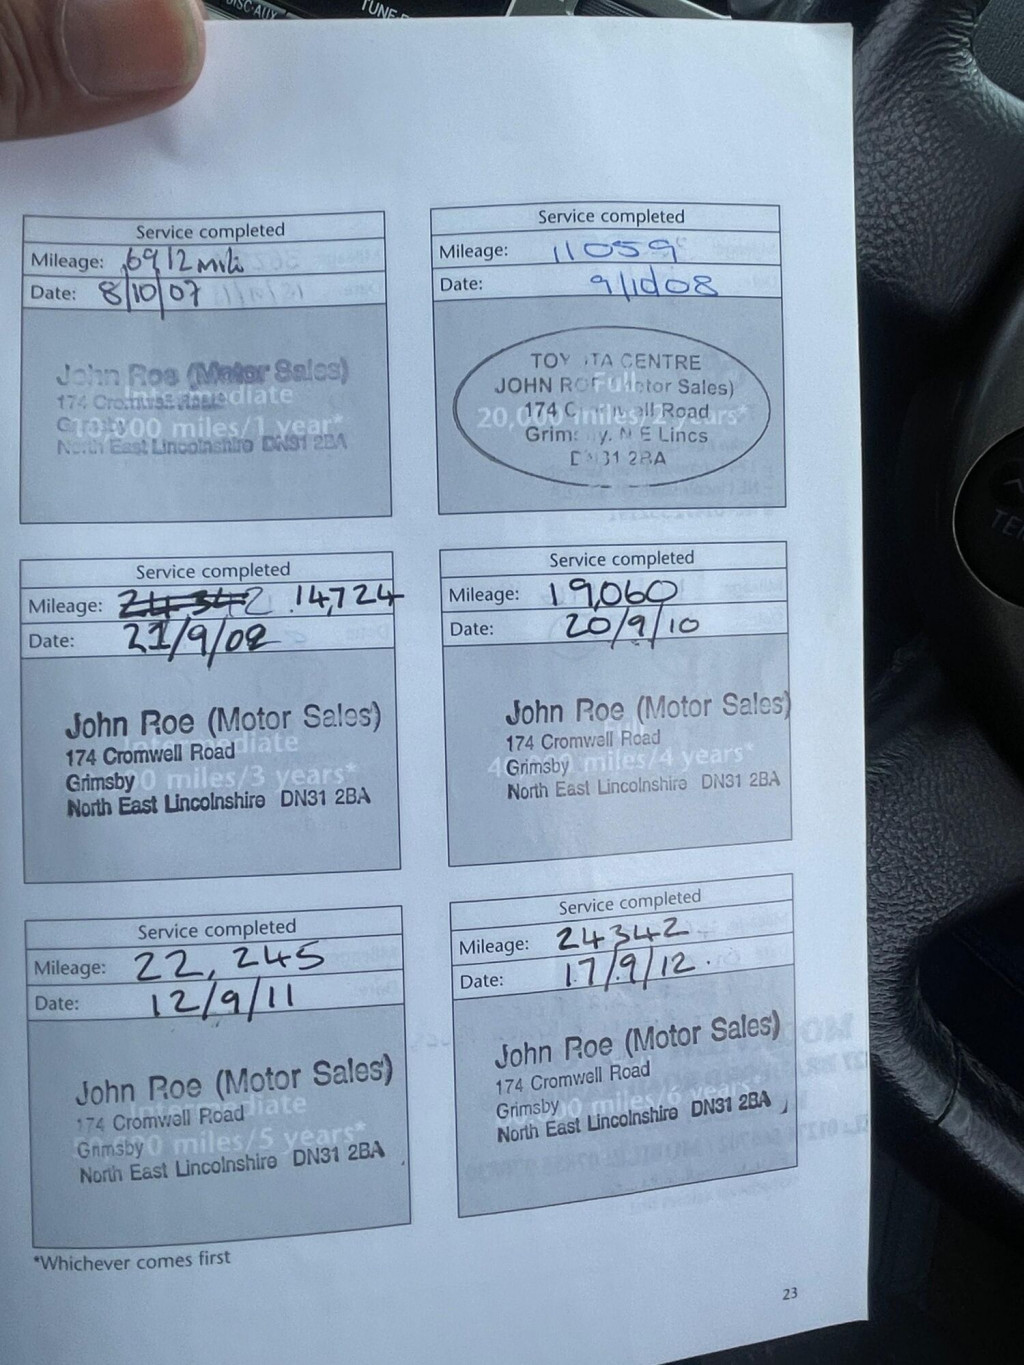 DISC·AUX
TUNE
Service completed
Mileage: 6912 mile
Date: 8/10/07
John Roe (Motor Sales)
174 Cromwell Road
North East Lincolnshire DN31 2BA
Intermediate
10,000 miles/1 year*
Service completed
Mileage: 11059
Date: 9/10/08
TOY TA CENTRE
JOHN RO tor Sales)
174 C ll Road
Grim y. N E Lincs
DN31 2BA
Full
20,000 miles/2 years*
Service completed
Mileage: 24,342 14,724
Date: 21/9/09
John Roe (Motor Sales)
174 Cromwell Road
Grimsby
North East Lincolnshire DN31 2BA
Intermediate
0 miles/3 years*
Service completed
Mileage: 19,060
Date: 20/9/10
John Roe (Motor Sales)
174 Cromwell Road
Grimsby
North East Lincolnshire DN31 2BA
Full
miles/4 years*
Service completed
Mileage: 22,245
Date: 12/9/11
John Roe (Motor Sales)
174 Cromwell Road
Grimsby
North East Lincolnshire DN31 2BA
Intermediate
miles/5 years*
Service completed
Mileage: 24342
Date: 17/9/12.
John Roe (Motor Sales)
174 Cromwell Road
Grimsby
North East Lincolnshire DN31 2BA
miles/6 years*
*Whichever comes first
23